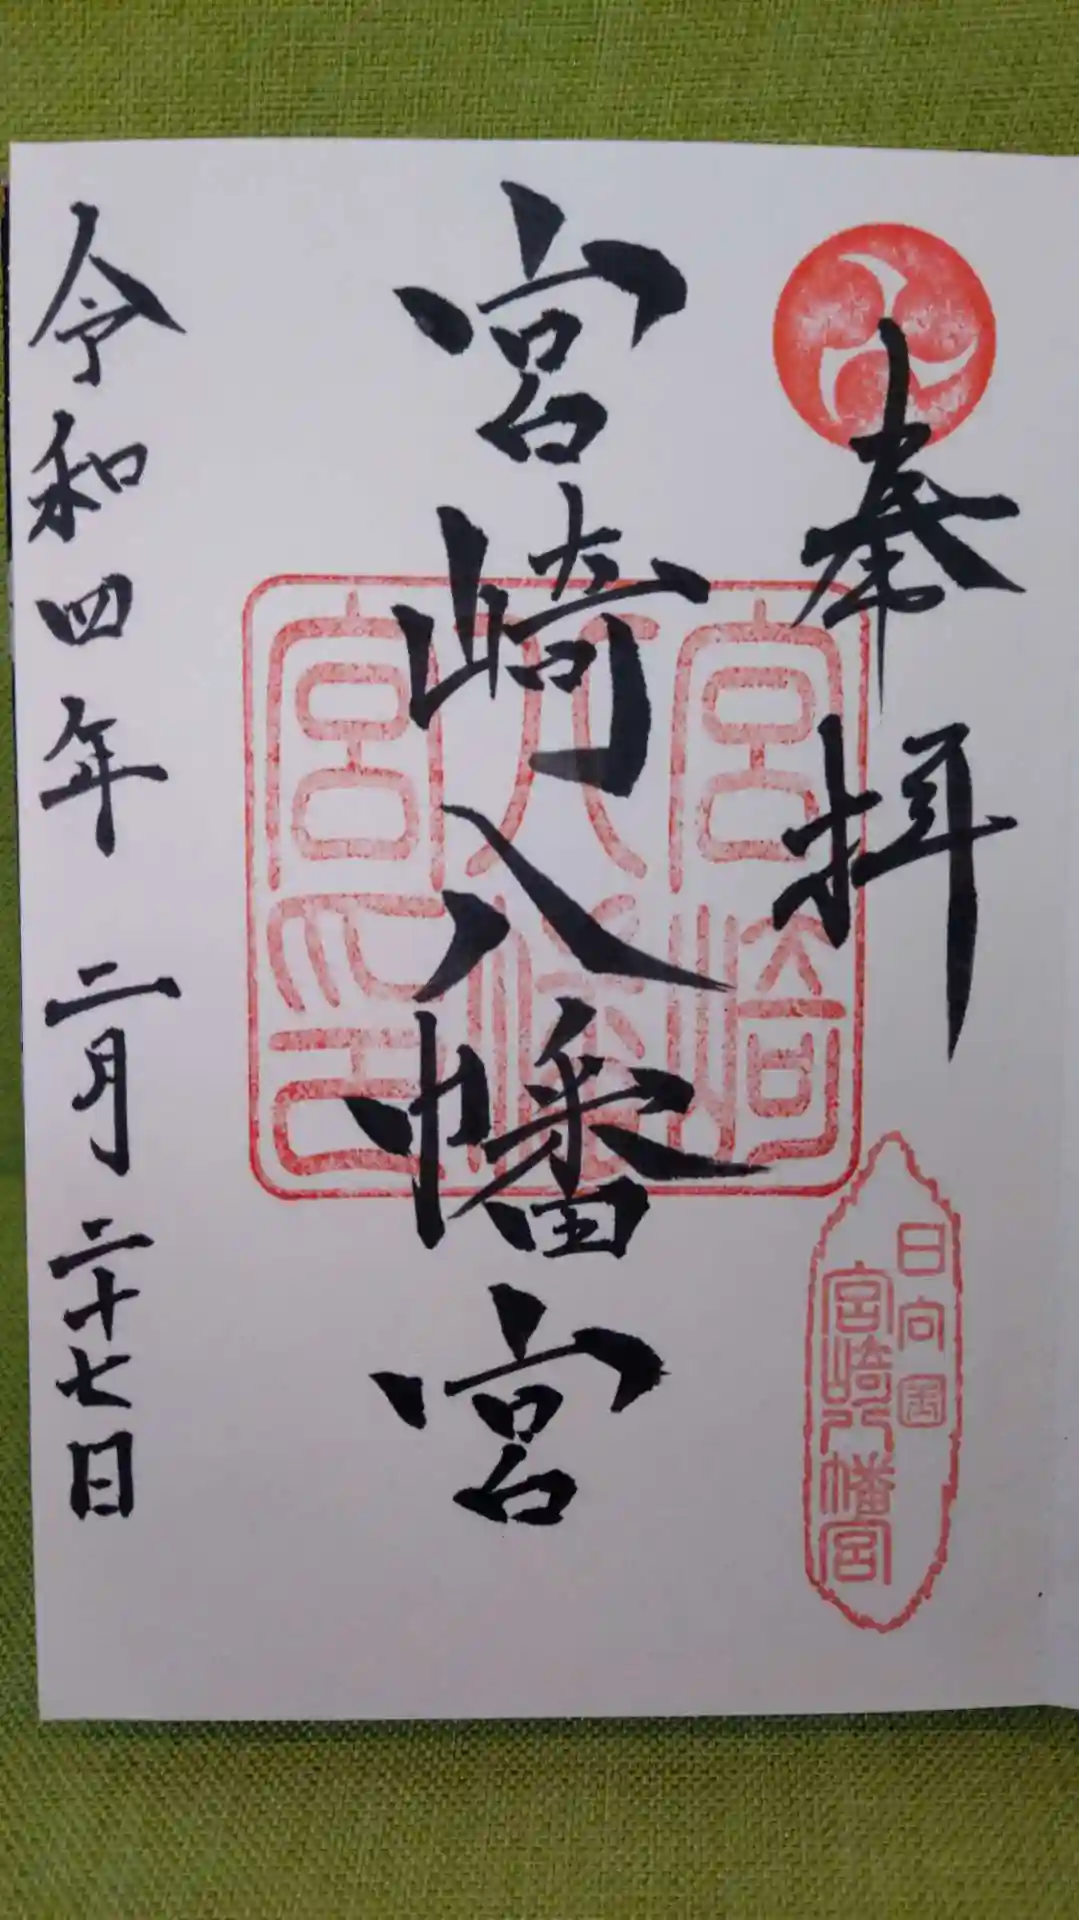 奉拝
日向国
宮崎八幡宮
宮崎八幡宮
宮崎
八幡
宮印
令和四年二月二十七日